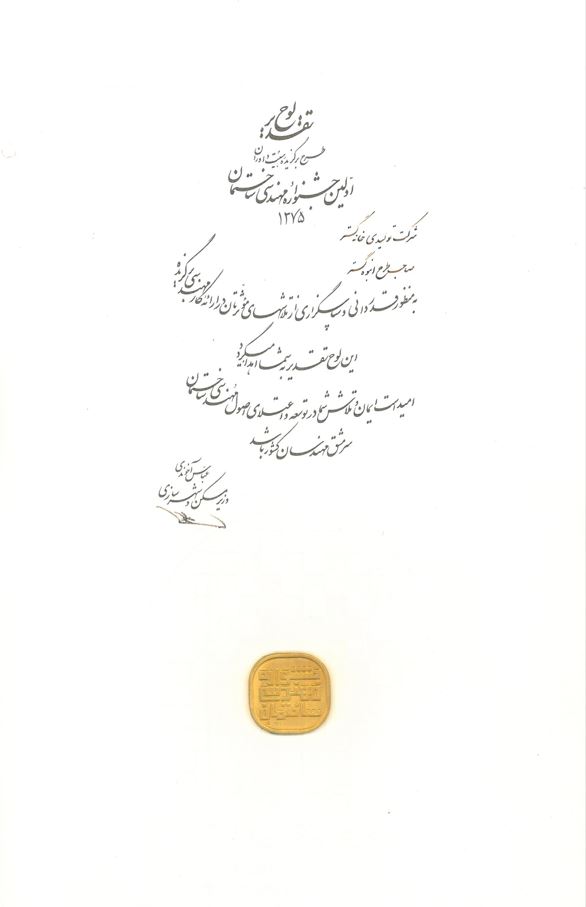 لوح تقدیر
طرح برگزیده هیئت داوران
اولین جشنواره مهندسی ساختمان
۱۳۷۵
شرکت تولیدی خانه گستر
صاحب طرح انبوه گستر
به منظور قدردانی و سپاسگزاری از تلاشهای مؤثرتان در ارائه کار مهندسی برگزیده
این لوح تقدیر به شما اهدا میگردد
امید است ایمان و تلاش شما در توسعه و اعتلای اصول مهندسی ساختمان
سرمشق مهندسان کشور باشد
عباس آخوندی
وزیر مسکن و شهرسازی